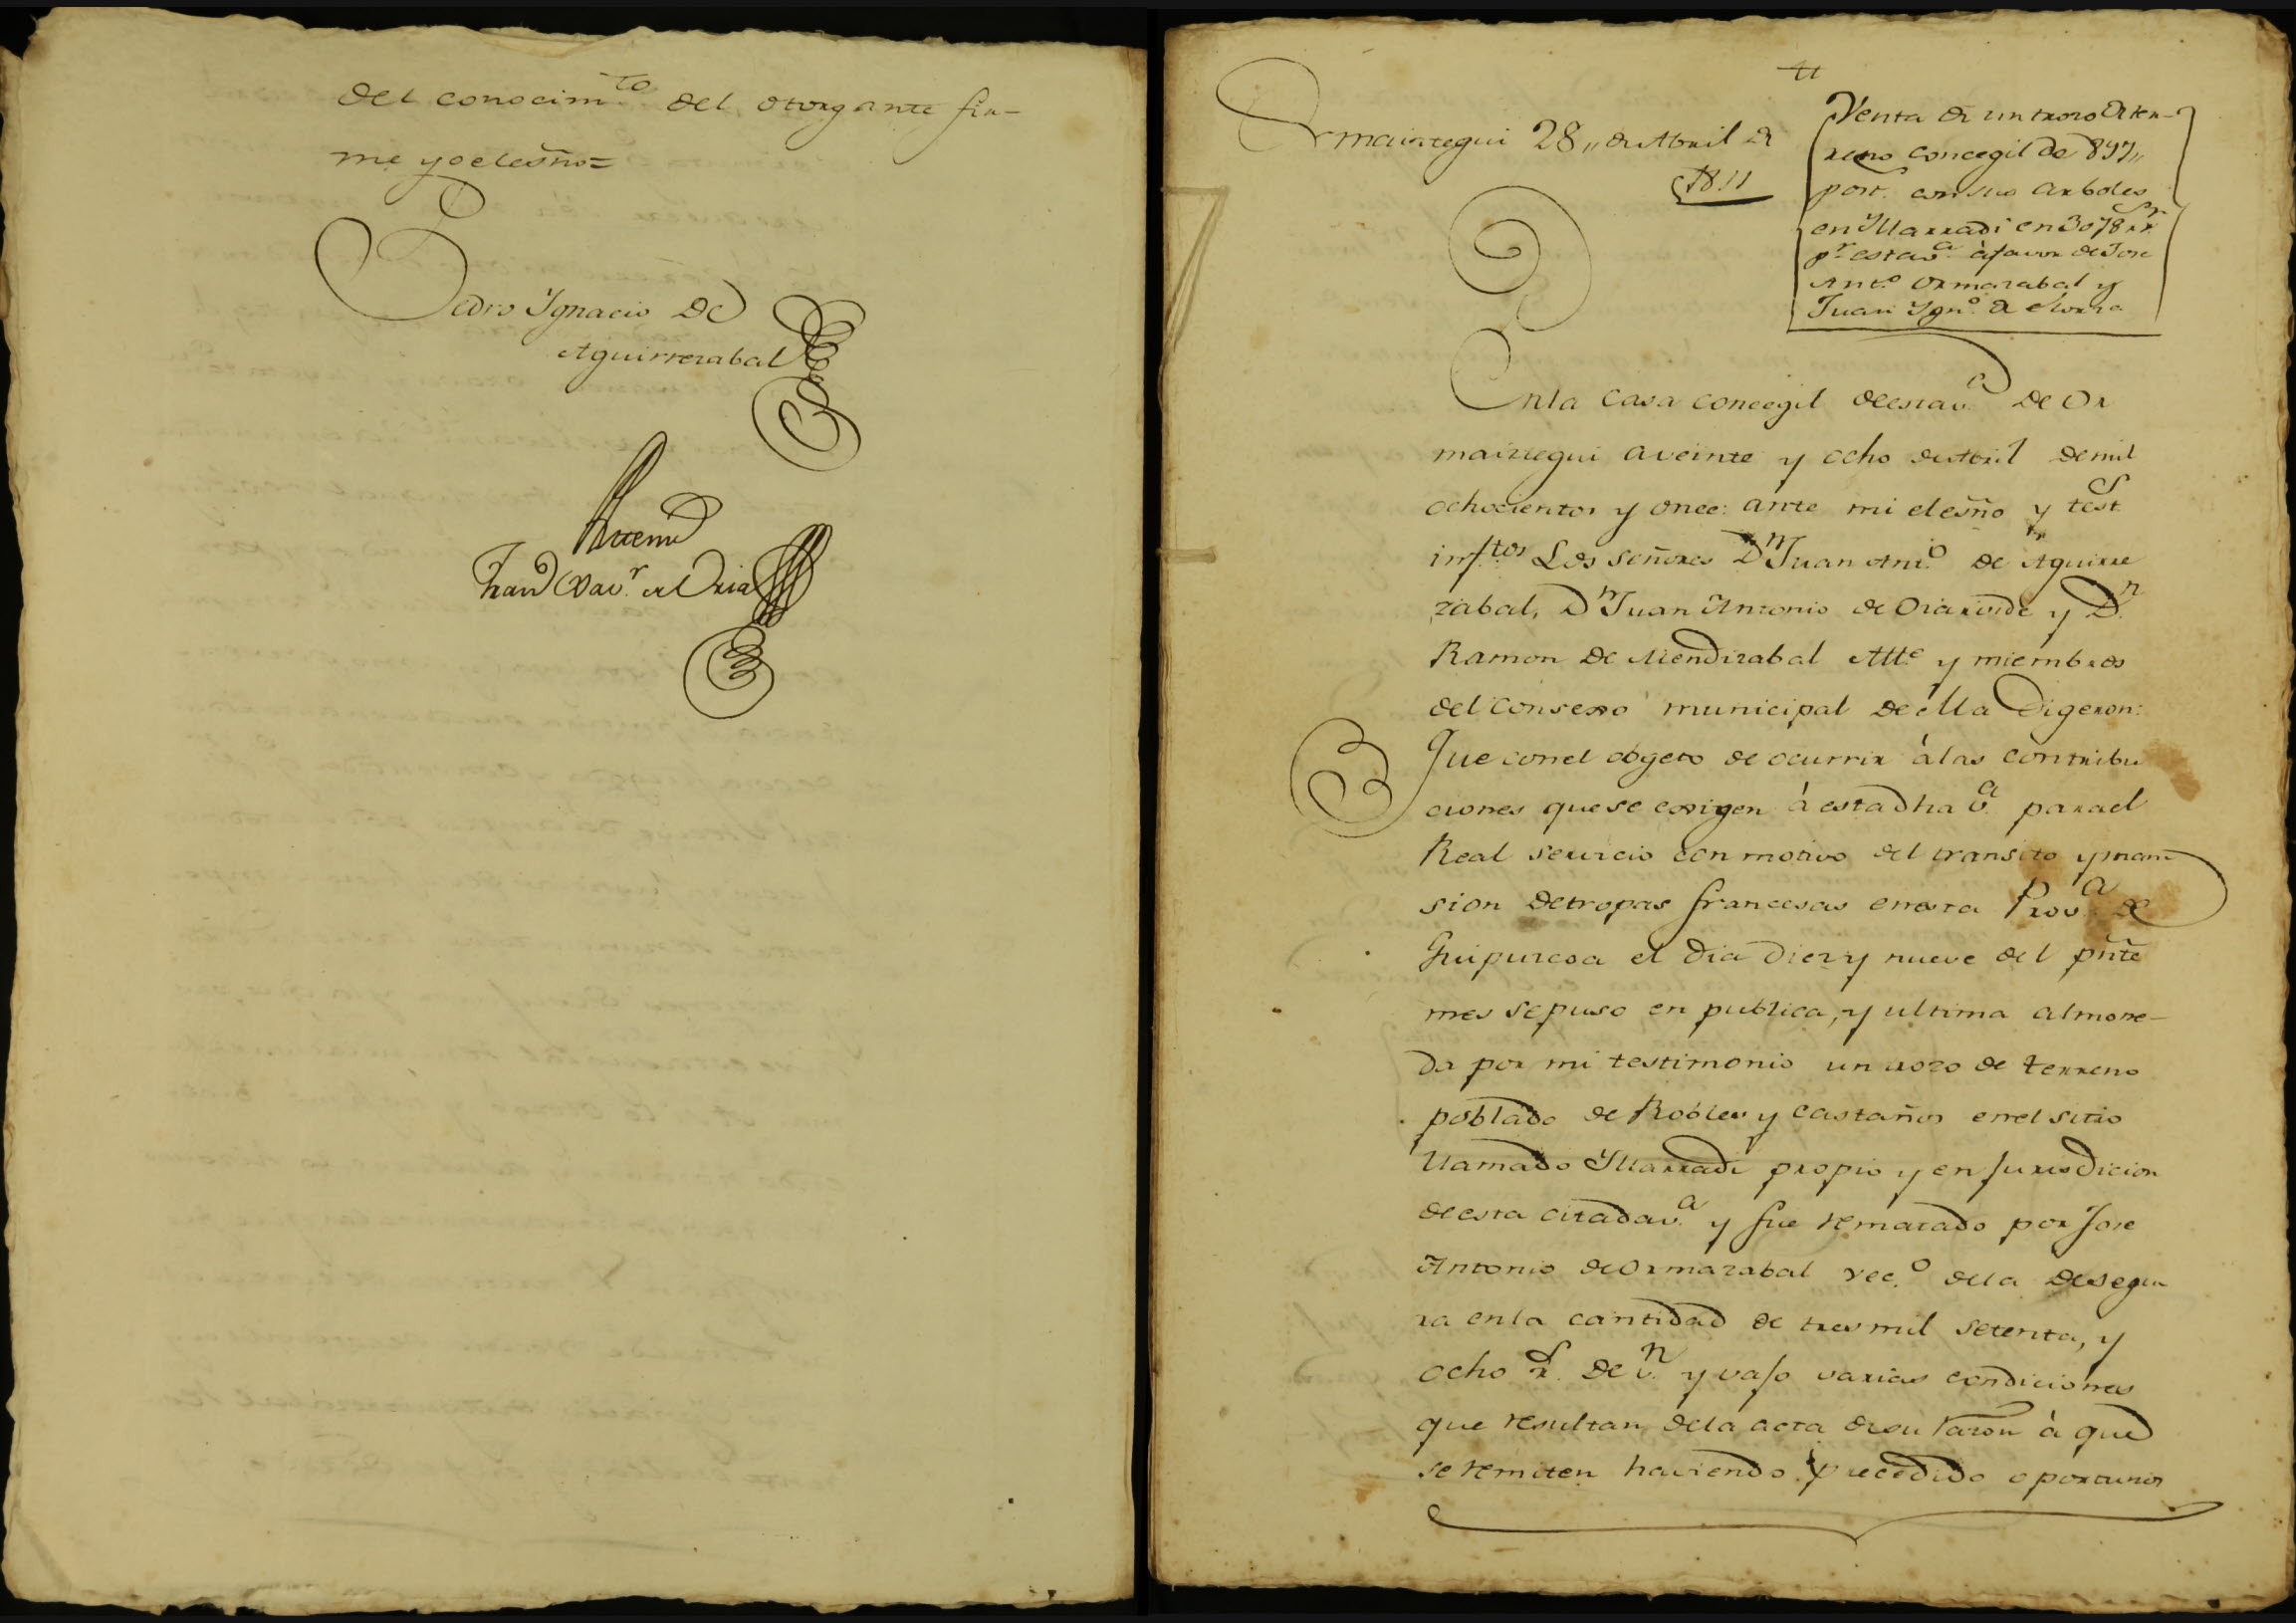 del conocim.to del otorgante fir-
me yo el esño=
Pedro Ignacio de
Aguirrezabal
Antemi
Fran.co Xav.r de Oria
Ormaiztegui 28,, de Abril de
1811
Venta de un trozo de ter-
reno concegil de 897,,
post.s con sus arboles
en Yllarradi en 3078 rr.s
p.r esta v.a à favor de Jose
Ant.o Ormazabal y
Juan Ygn.o de elorza
En la Casa concegil de esta v.a de Or
maiztegui a veinte y ocho de Abril de mil
ochocientos y once: ante mi el esño y test.s
inf.tos Los señores D.n Juan Ant.o de Aguirre
zabal, D.n Juan Antonio de Oiarvide y D.n
Ramon de Mendizabal Alc.e y miembros
del Consexo municipal de ella Digeron:
Que con el obgeto de ocurrir à las contribu
ciones que se exigen à esta dha v.a para el
Real servicio con motivo del transito y man
sion de tropas francesas en esta Prov.a de
Guipuzcoa el dia diez y nueve del pñte
mes se puso en publica, y ultima almone-
da por mi testimonio un trozo de terreno
poblado de Robles y castaños en el sitio
llamado Yllarradi propio y en jurisdicion
de esta citada v.a y fue rematado por Jose
Antonio de Ormazabal vec.o de la de segu
ra en la cantidad de tres mil setenta, y
ocho r.s de v.n y vajo varias condiciones
que resultan de la acta de su razon à que
se remiten haviendo precedido oportunos